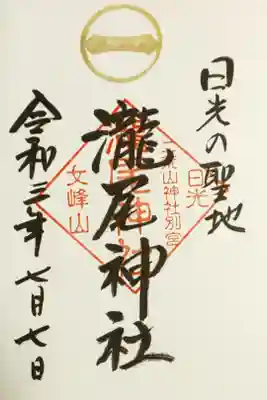 日光の聖地
日光
二荒山神社別宮
瀧尾神社
女峰山
令和三年七月七日